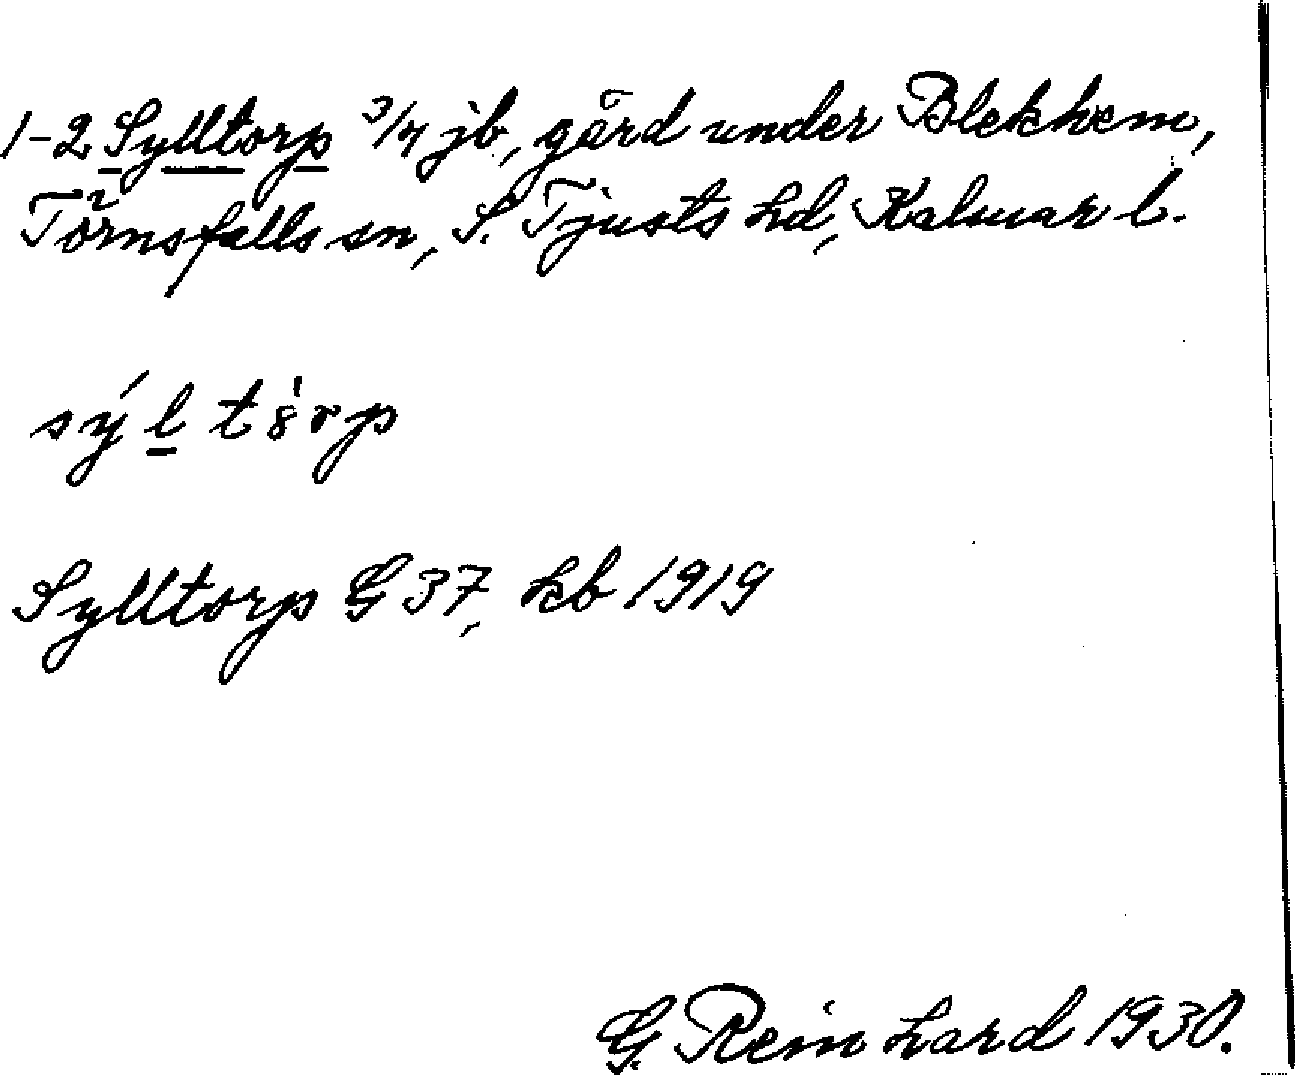 1-2 Sylltorp 3/4 jb, gård under Blekhem,
Törnsfalls sn, S. Tjusts hd, Kalmar l.
sýltòrp
Sylltorp G 37, kb 1919
G. Reinhard 1930.